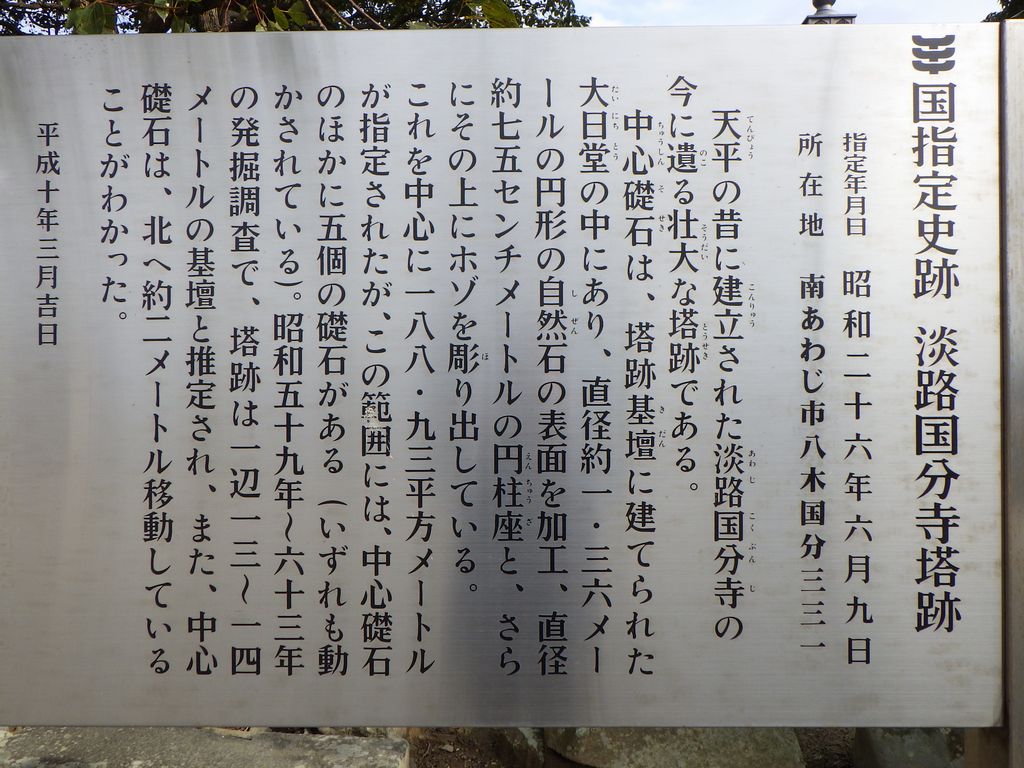 国指定史跡 淡路国分寺塔跡
指定年月日 昭和二十六年六月九日
所在地 南あわじ市八木国分三三一
天平の昔に建立された淡路国分寺の
今に遺る壮大な塔跡である。
中心礎石は、塔跡基壇に建てられた
大日堂の中にあり、直径約一・三六メー
ールの円形の自然石の表面を加工、直径
約七五センチメートルの円柱座と、さら
にその上にホゾを彫り出している。
これを中心に一八八・九三平方メートル
が指定されたが、この範囲には、中心礎石
のほかに五個の礎石がある(いずれも動
かされている)。昭和五十九年〜六十三年
の発掘調査で、塔跡は一辺一三〜一四
メートルの基壇と推定され、また、中心
礎石は、北へ約二メートル移動している
ことがわかった。
平成十年三月吉日